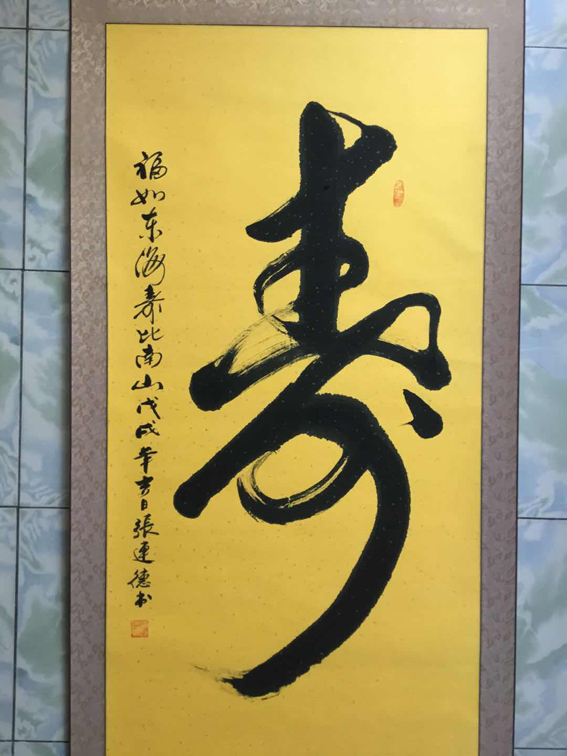 寿
福如东海寿比南山戊戌年吉日張連德书